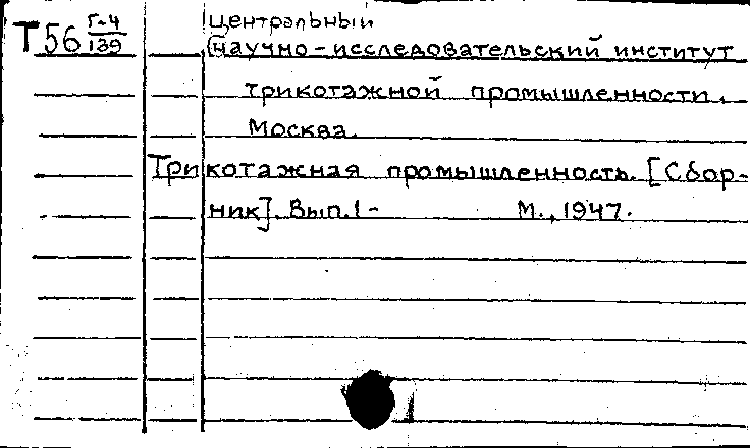 Т56 Г-4/139
Центральный
научно-исследовательский институт
трикотажной промышленности.
Москва.
Трикотажная промышленность. [Сбор-
ник]. Вып. 1- М., 1947.